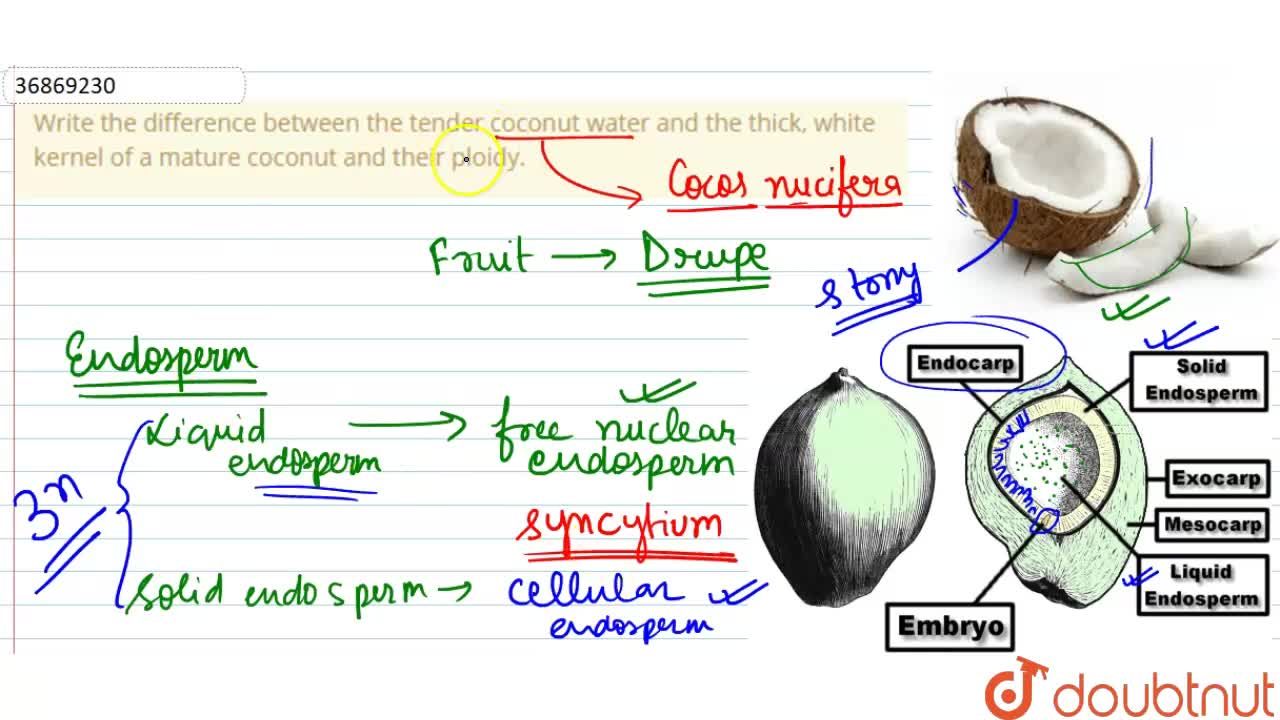 36869230
Write the difference between the tender coconut water and the thick, white
kernel of a mature coconut and their ploidy.
Cocos nucifera
Fruit → Drupe
stony
Endosperm
Liquid
endosperm → free nuclear
endosperm
3n
syncytium
Solid endosperm → cellular
endosperm
Endocarp
Solid
Endosperm
Exocarp
Mesocarp
Liquid
Endosperm
Embryo
doubtnut